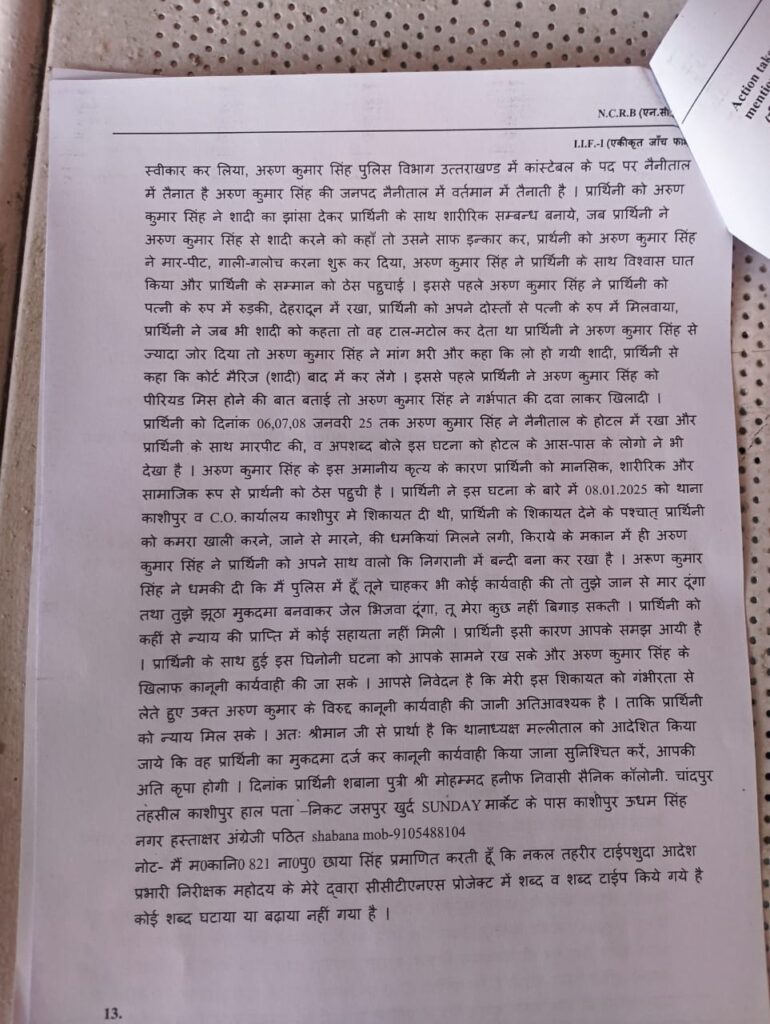 Action
N.C.R.B (एन.सी.
I.I.F.-I (एकीकृत जाँच
स्वीकार कर लिया, अरुण कुमार सिंह पुलिस विभाग उत्तराखण्ड में कांस्टेबल के पद पर नैनीताल
में तैनात है अरुण कुमार सिंह की जनपद नैनीताल में वर्तमान में तैनाती है | प्रार्थिनी को अरुण
कुमार सिंह ने शादी का झांसा देकर प्रार्थिनी के साथ शारीरिक सम्बन्ध बनाये, जब प्रार्थिनी ने
अरुण कुमार सिंह से शादी करने को कहाँ तो उसने साफ इन्कार कर, प्रार्थनी को अरुण कुमार सिंह
ने मार-पीट, गाली-गलोच करना शुरू कर दिया, अरुण कुमार सिंह ने प्रार्थिनी के साथ विश्वास घात
किया और प्रार्थिनी के सम्मान को ठेस पहुचाई | इससे पहले अरुण कुमार सिंह ने प्रार्थिनी को
पत्नी के रुप में रुड़की, देहरादून में रखा, प्रार्थिनी को अपने दोस्तों से पत्नी के रुप में मिलवाया,
प्रार्थिनी ने जब भी शादी को कहता तो वह टाल-मटोल कर देता था प्रार्थिनी ने अरुण कुमार सिंह से
ज्यादा जोर दिया तो अरुण कुमार सिंह ने मांग भरी और कहा कि लो हो गयी शादी, प्रार्थिनी से
कहा कि कोर्ट मैरिज (शादी) बाद में कर लेंगे | इससे पहले प्रार्थिनी ने अरुण कुमार सिंह को
पीरियड मिस होने की बात बताई तो अरुण कुमार सिंह ने गर्भपात की दवा लाकर खिलादी |
प्रार्थिनी को दिनांक 06,07,08 जनवरी 25 तक अरुण कुमार सिंह ने नैनीताल के होटल में रखा और
प्रार्थिनी के साथ मारपीट की, व अपशब्द बोले इस घटना को होटल के आस-पास के लोगो ने भी
देखा है | अरुण कुमार सिंह के इस अमानीय कृत्य के कारण प्रार्थिनी को मानसिक, शारीरिक और
सामाजिक रूप से प्रार्थनी को ठेस पहुची है | प्रार्थिनी ने इस घटना के बारे में 08.01.2025 को थाना
काशीपुर व C.O. कार्यालय काशीपुर मे शिकायत दी थी, प्रार्थिनी के शिकायत देने के पश्चात् प्रार्थिनी
को कमरा खाली करने, जाने से मारने, की धमकियां मिलने लगी, किराये के मकान में ही अरुण
कुमार सिंह ने प्रार्थिनी को अपने साथ वालो कि निगरानी में बन्दी बना कर रखा है | अरूण कुमार
सिंह ने धमकी दी कि मैं पुलिस में हूँ तूने चाहकर भी कोई कार्यवाही की तो तुझे जान से मार दूंगा
तथा तुझे झूठा मुकदमा बनवाकर जेल भिजवा दूंगा, तू मेरा कुछ नहीं बिगाड़ सकती | प्रार्थिनी को
कहीं से न्याय की प्राप्ति में कोई सहायता नहीं मिली | प्रार्थिनी इसी कारण आपके समझ आयी है
| प्रार्थिनी के साथ हुई इस घिनोनी घटना को आपके सामने रख सके और अरुण कुमार सिंह के
खिलाफ कानूनी कार्यवाही की जा सके | आपसे निवेदन है कि मेरी इस शिकायत को गंभीरता से
लेते हुए उक्त अरुण कुमार के विरुद्द कानूनी कार्यवाही की जानी अतिआवश्यक है | ताकि प्रार्थिनी
को न्याय मिल सके | अतः श्रीमान जी से प्रार्था है कि थानाध्यक्ष मल्लीताल को आदेशित किया
जाये कि वह प्रार्थिनी का मुकदमा दर्ज कर कानूनी कार्यवाही किया जाना सुनिश्चित करें, आपकी
अति कृपा होगी | दिनांक प्रार्थिनी शबाना पुत्री श्री मोहम्मद हनीफ निवासी सैनिक कॉलोनी. चांदपुर
तहसील काशीपुर हाल पता –निकट जसपुर खुर्द SUNDAY मार्केट के पास काशीपुर ऊधम सिंह
नगर हस्ताक्षर अंग्रेजी पठित shabana mob-9105488104
नोट- मैं म0कानि0 821 ना0पु0 छाया सिंह प्रमाणित करती हूँ कि नकल तहरीर टाईपशुदा आदेश
प्रभारी निरीक्षक महोदय के मेरे द्वारा सीसीटीएनएस प्रोजेक्ट में शब्द व शब्द टाईप किये गये है
कोई शब्द घटाया या बढ़ाया नहीं गया है |
13.